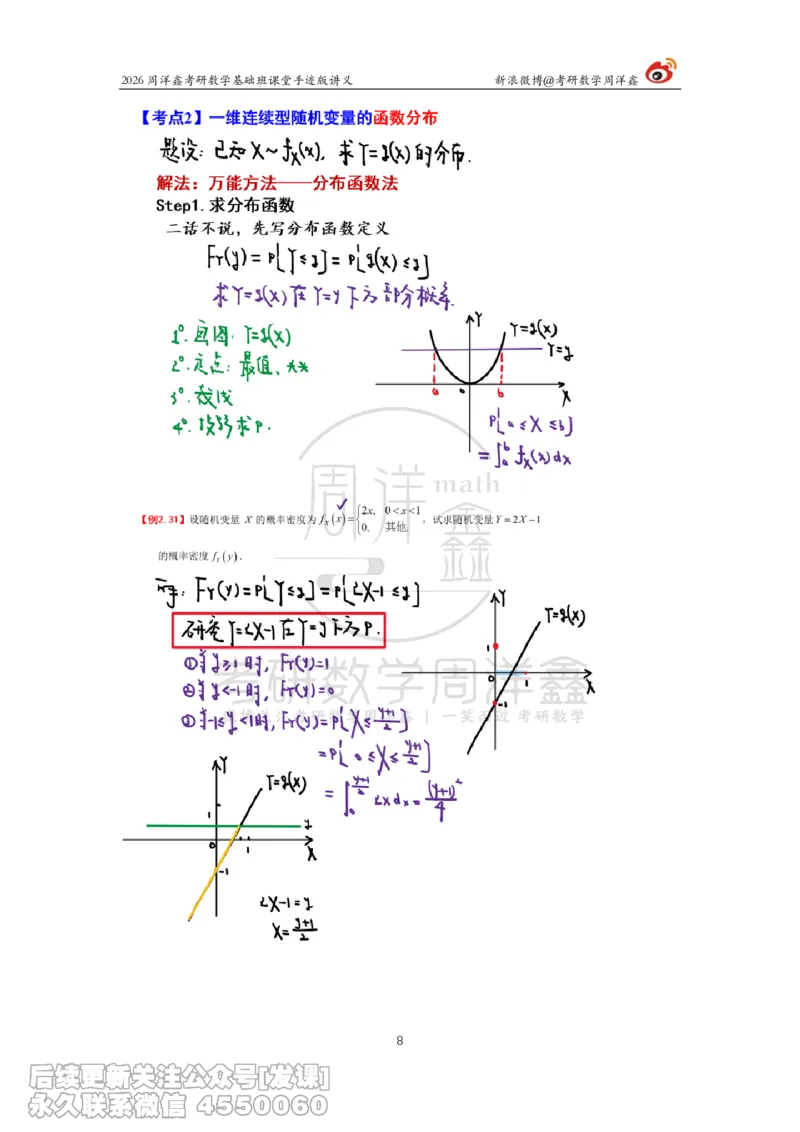 2026 周洋鑫考研数学基础班课堂手迹版讲义 新浪微博@考研数学周洋鑫
【考点2】一维连续型随机变量的函数分布
题设：已知 X~f_X(x)，求 Y=g(X) 的分布.
解法：万能方法——分布函数法
Step1.求分布函数
二话不说，先写分布函数定义
F_Y(y)=P{Y≤y}=P{g(X)≤y}
求Y=g(X)在Y=y下方部分概率.
1°.画图：Y=g(X)
2°.定点：最值、
3°.截线
4°. 求P.
Y
Y=g(X)
Y=y
a
0
b
X
P{a≤X≤b}
=∫_a^b f_X(x)dx
周洋鑫
math
【例2.31】设随机变量 X 的概率密度为 f_X(x)={2x, 0<x<1
0, 其他.
，试求随机变量Y=2X-1
的概率密度 f_Y(y).
解：F_Y(y)=P{Y≤y}=P{2X-1≤y}
研究Y=2X-1在Y=y下方P.
①当y≥1时，F_Y(y)=1
②当y<-1时，F_Y(y)=0
③当-1≤y<1时，F_Y(y)=P{X≤(y+1)/2}
=P{0≤X≤(y+1)/2}
=∫_0^((y+1)/2) 2xdx=(y+1)²/4
Y
Y=g(X)
1
0
1
X
-1
考研数学周洋鑫
一笑而过 考研数学
Y
Y=g(X)
1
y
0
1
X
-1
2X-1=y
X=(y+1)/2
8
后续更新关注公众号[发课]
永久联系微信 4550060